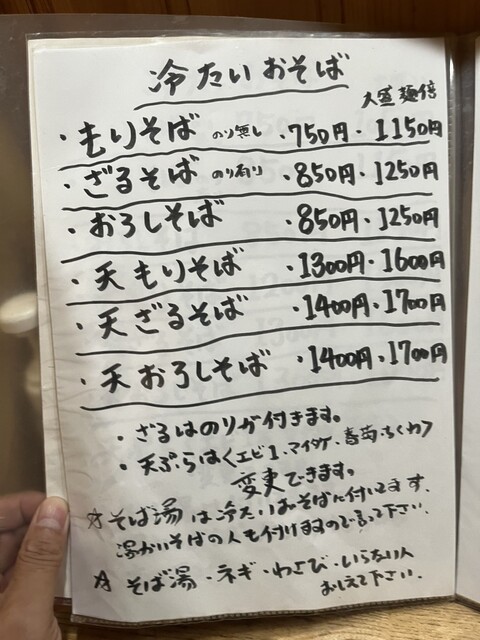 冷たいおそば
大盛 麺倍
・もりそば のり無し ・750円・1150円
・ざるそば のり有り ・850円・1250円
・おろしそば ・850円・1250円
・天もりそば ・1300円・1600円
・天ざるそば ・1400円・1700円
・天おろしそば ・1400円・1700円
・ざるはのりが付きます。
・天ぷらは〈エビ1、マイタケ、春菊、ちくわ〉
変更できます。
☆そば湯は冷たいおそばに付いてます、
温かいそばの人も付けますので言って下さい、
☆そば湯・ネギ・わさび・いらない人
おしえて下さい、